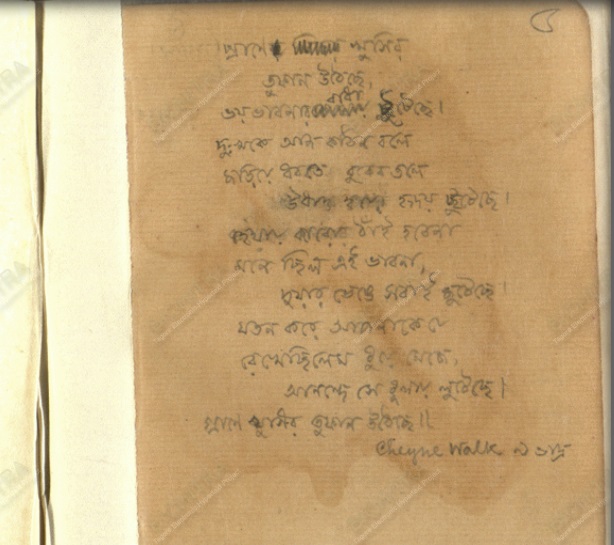 প্রাণে খুশির
তুফান উঠেছে,
ভয়ভাবনার বাধা টুটেছে।
দুঃখকে আজ কঠিন বলে
জড়িয়ে ধরতে বুকের তলে
উধাও হয়ে হৃদয় ছুটেছে।
হেথায় কারোর ঠাঁই হবেনা
মনে ছিল এই ভাবনা,
দুয়ার ভেঙে সবাই জুটেছে।
যতন করে আপনাকে যে
রেখেছিলেম ধুয়ে মেজে,
আনন্দে সে ধুলায় লুটেছে।
প্রাণে খুশির তুফান উঠেছে॥
Cheyne Walk ৯ ভাদ্র